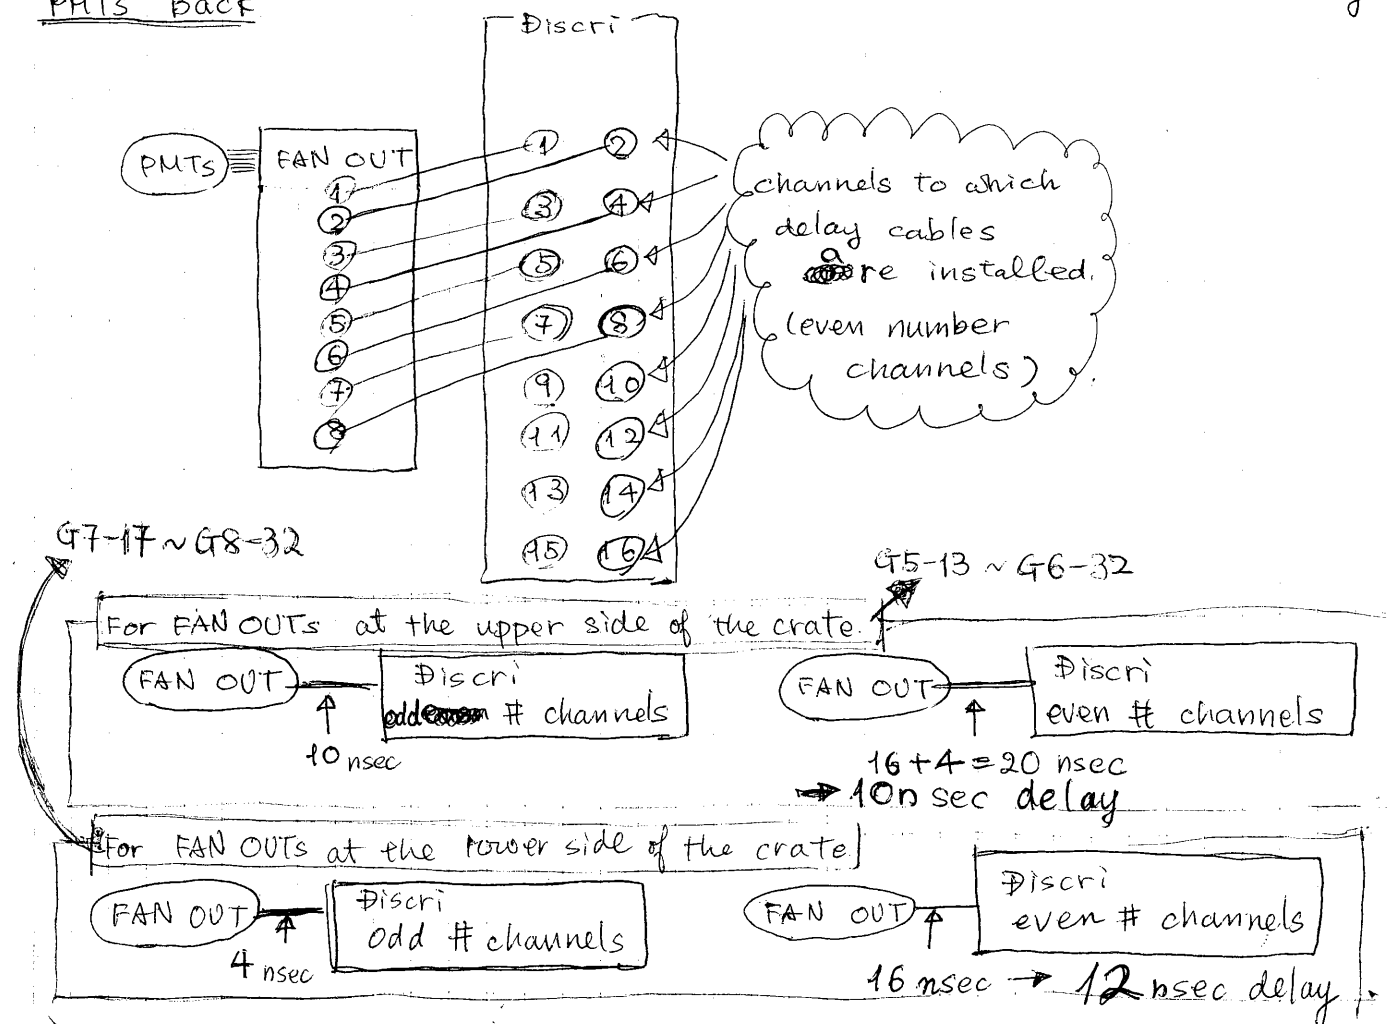 PMTs back
Discri
PMTs
FAN OUT
1
2
3
4
5
6
7
8
1 2
3 4
5 6
7 8
9 10
11 12
13 14
15 16
channels to which
delay cables
are installed.
(even number
channels)
G7-17 ~ G8-32
G5-13 ~ G6-32
For FAN OUTs at the upper side of the crate.
FAN OUT
Discri
odd # channels
10 nsec
FAN OUT
Discri
even # channels
16 + 4 = 20 nsec
→ 10n sec delay
For FAN OUTs at the lower side of the crate
FAN OUT
Discri
odd # channels
4 nsec
FAN OUT
Discri
even # channels
16 nsec → 12 nsec delay.